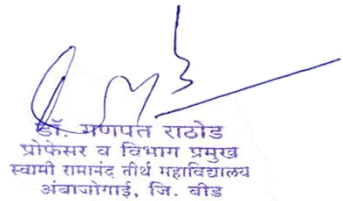 डॉ. गणपत राठोड
प्रोफेसर व विभाग प्रमुख
स्वामी रामानंद तीर्थ महाविद्यालय
अंबाजोगाई, जि. बीड